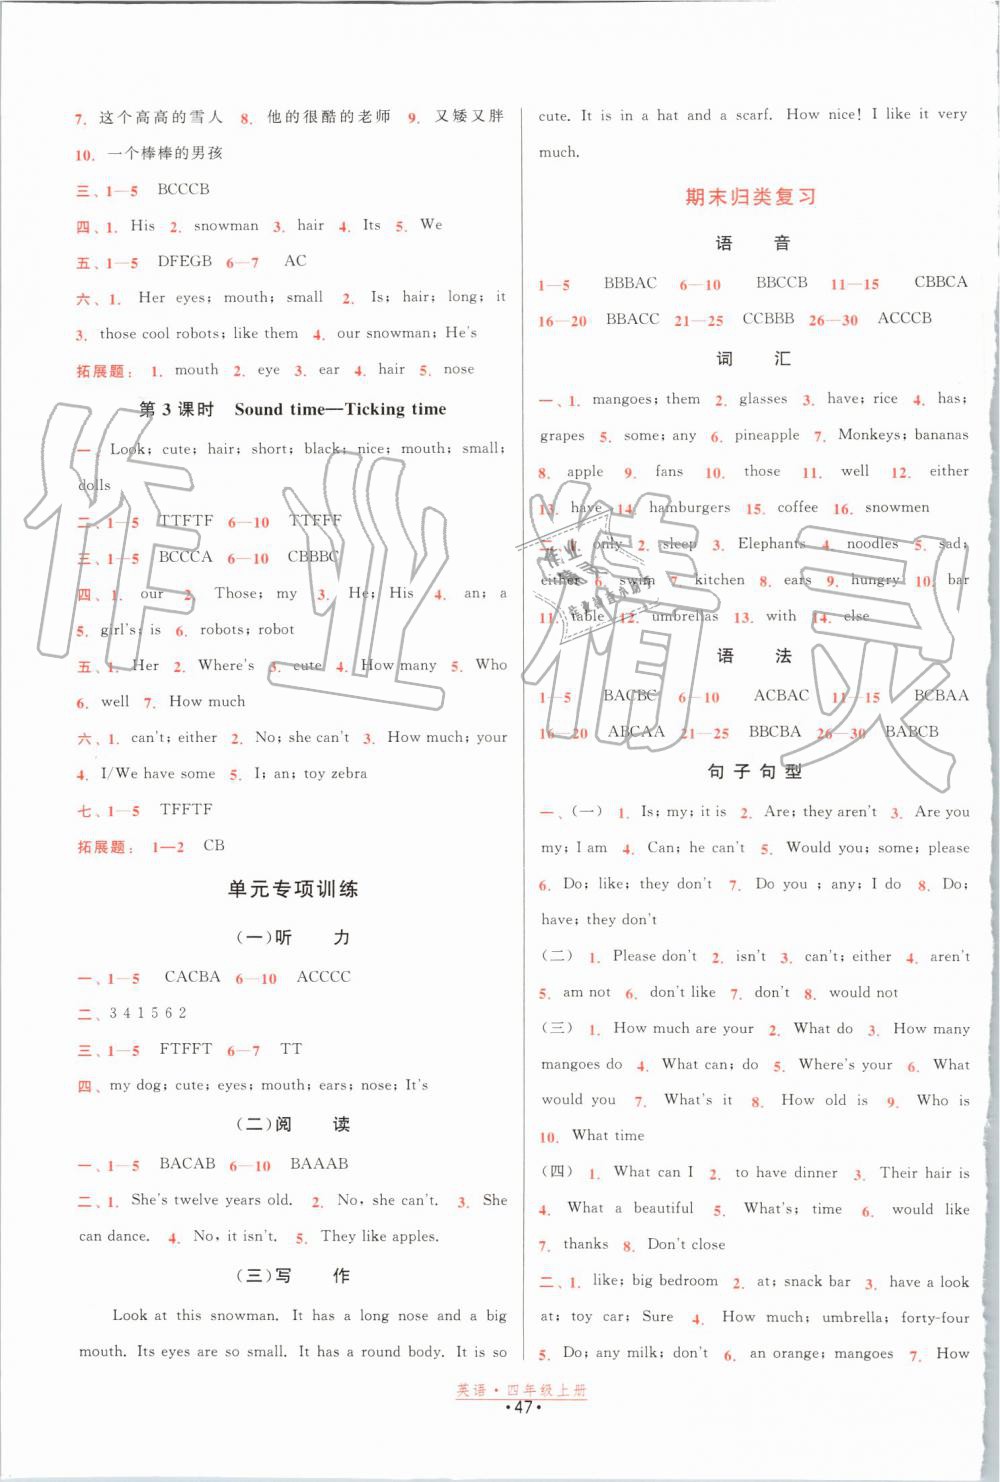 7. 这个高高的雪人 8. 他的很酷的老师 9. 又矮又胖
10. 一个棒棒的男孩
三、1—5 BCCCB
四、1. His 2. snowman 3. hair 4. Its 5. We
五、1—5 DFEGB 6—7 AC
六、1. Her eyes; mouth; small 2. Is; hair; long; it
3. those cool robots; like them 4. our snowman; He's
拓展题: 1. mouth 2. eye 3. ear 4. hair 5. nose
第 3 课时 Sound time—Ticking time
一、Look; cute; hair; short; black; nice; mouth; small;
dolls
二、1—5 TTFTF 6—10 TTFFF
三、1—5 BCCCA 6—10 CBBBC
四、1. our 2. Those; my 3. He; His 4. an; a
5. girl's; is 6. robots; robot
五、1. Her 2. Where's 3. cute 4. How many 5. Who
6. well 7. How much
六、1. can't; either 2. No; she can't 3. How much; your
4. I/We have some 5. I; an; toy zebra
七、1—5 TFFTF
拓展题: 1—2 CB
单元专项训练
(一)听 力
一、1—5 CACBA 6—10 ACCCC
二、3 4 1 5 6 2
三、1—5 FTFFT 6—7 TT
四、my dog; cute; eyes; mouth; ears; nose; It's
(二)阅 读
一、1—5 BACAB 6—10 BAAAB
二、1. She's twelve years old. 2. No, she can't. 3. She
can dance. 4. No, it isn't. 5. They like apples.
(三)写 作
Look at this snowman. It has a long nose and a big
mouth. Its eyes are so small. It has a round body. It is so
cute. It is in a hat and a scarf. How nice! I like it very
much.
期末归类复习
语 音
1—5 BBBAC 6—10 BBCCB 11—15 CBBCA
16—20 BBACC 21—25 CCBBB 26—30 ACCCB
词 汇
一、1. mangoes; them 2. glasses 3. have; rice 4. has;
grapes 5. some; any 6. pineapple 7. Monkeys; bananas
8. apple 9. fans 10. those 11. well 12. either
13. have 14. hamburgers 15. coffee 16. snowmen
二、1. only 2. sleep 3. Elephants 4. noodles 5. sad;
either 6. swim 7. kitchen 8. ears 9. hungry 10. bar
11. table 12. umbrellas 13. with 14. else
语 法
1—5 BACBC 6—10 ACBAC 11—15 BCBAA
16—20 ABCAA 21—25 BBCBA 26—30 BABCB
句 子 句 型
一、(一) 1. Is; my; it is 2. Are; they aren't 3. Are you
my; I am 4. Can; he can't 5. Would you; some; please
6. Do; like; they don't 7. Do you ; any; I do 8. Do;
have; they don't
(二) 1. Please don't 2. isn't 3. can't; either 4. aren't
5. am not 6. don't like 7. don't 8. would not
(三) 1. How much are your 2. What do 3. How many
mangoes do 4. What can; do 5. Where's your 6. What
would you 7. What's it 8. How old is 9. Who is
10. What time
(四) 1. What can I 2. to have dinner 3. Their hair is
4. What a beautiful 5. What's; time 6. would like
7. thanks 8. Don't close
二、1. like; big bedroom 2. at; snack bar 3. have a look
at; toy car; Sure 4. How much; umbrella; forty-four
5. Do; any milk; don't 6. an orange; mangoes 7. How
英语·四年级上册
·47·
作业精灵